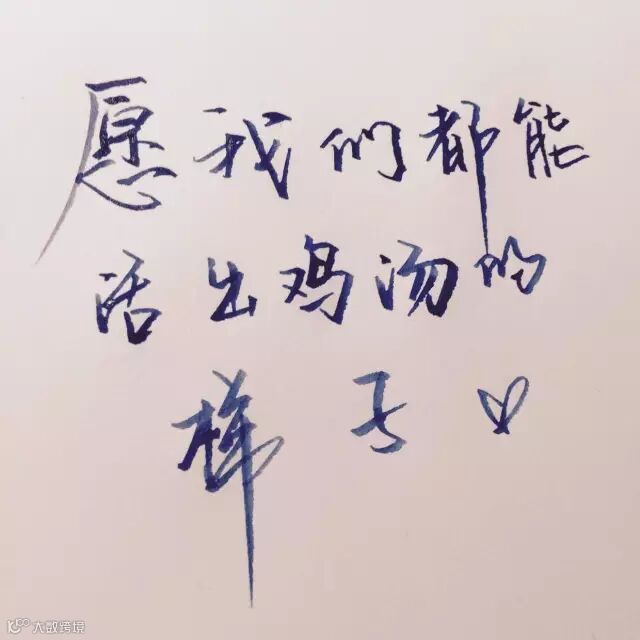 愿我们都能
活出鸡汤的
样子
大数跨境